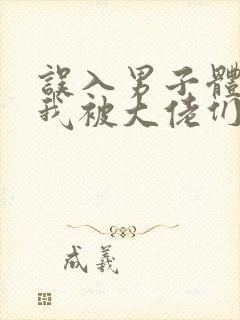 誤入男子體
我被大佬们
成羲